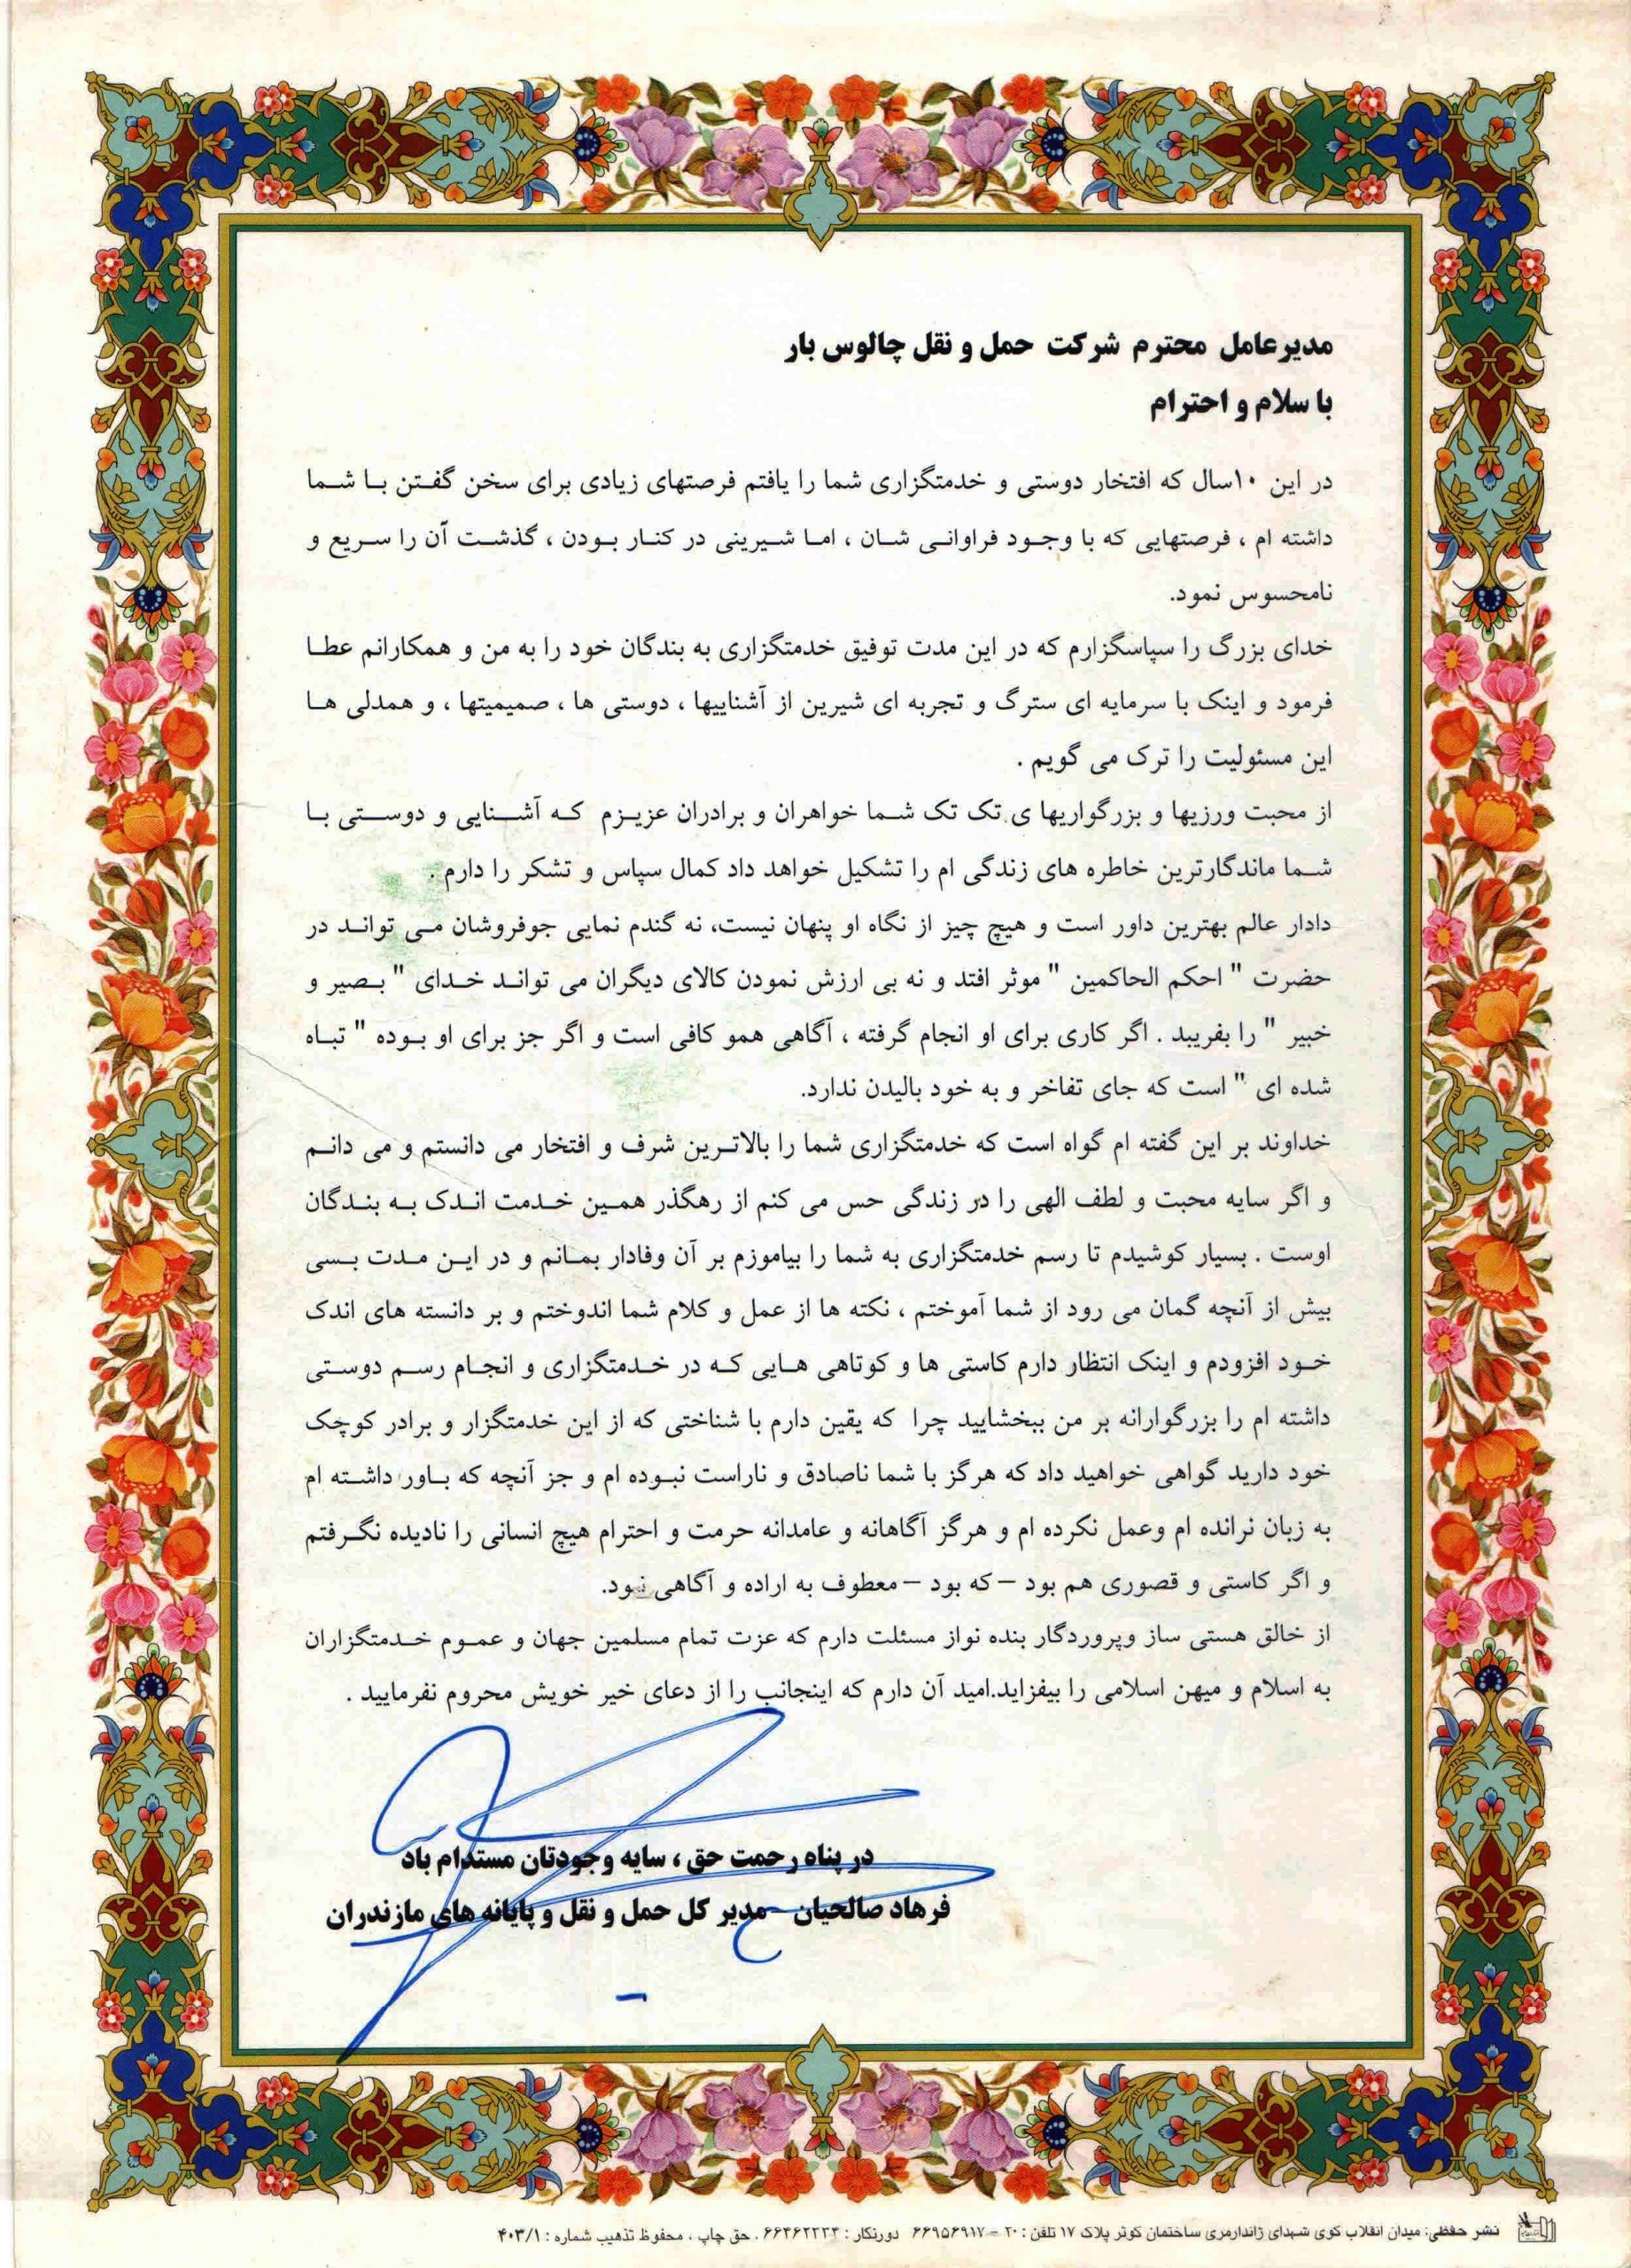 مدیرعامل محترم شرکت حمل و نقل چالوس بار
با سلام و احترام
در این ۱۰سال که افتخار دوستی و خدمتگزاری شما را یافتم فرصتهای زیادی برای سخن گفتن با شما
داشته ام ، فرصتهایی که با وجود فراوانی شان ، اما شیرینی در کنار بودن ، گذشت آن را سریع و
نامحسوس نمود.
خدای بزرگ را سپاسگزارم که در این مدت توفیق خدمتگزاری به بندگان خود را به من و همکارانم عطا
فرمود و اینک با سرمایه ای سترگ و تجربه ای شیرین از آشناییها ، دوستی ها ، صمیمیتها ، و همدلی ها
این مسئولیت را ترک می گویم .
از محبت ورزیها و بزرگواریها ی تک تک شما خواهران و برادران عزیزم که آشنایی و دوستی با
شما ماندگارترین خاطره های زندگی ام را تشکیل خواهد داد کمال سپاس و تشکر را دارم .
دادار عالم بهترین داور است و هیچ چیز از نگاه او پنهان نیست، نه گندم نمایی جوفروشان می تواند در
حضرت " احکم الحاکمین " موثر افتد و نه بی ارزش نمودن کالای دیگران می تواند خدای " بصیر و
خبیر " را بفریبد . اگر کاری برای او انجام گرفته ، آگاهی همو کافی است و اگر جز برای او بوده " تباه
شده ای " است که جای تفاخر و به خود بالیدن ندارد.
خداوند بر این گفته ام گواه است که خدمتگزاری شما را بالاترین شرف و افتخار می دانستم و می دانم
و اگر سایه محبت و لطف الهی را در زندگی حس می کنم از رهگذر همین خدمت اندک به بندگان
اوست . بسیار کوشیدم تا رسم خدمتگزاری به شما را بیاموزم بر آن وفادار بمانم و در این مدت بسی
بیش از آنچه گمان می رود از شما آموختم ، نکته ها از عمل و کلام شما اندوختم و بر دانسته های اندک
خود افزودم و اینک انتظار دارم کاستی ها و کوتاهی هایی که در خدمتگزاری و انجام رسم دوستی
داشته ام را بزرگوارانه بر من ببخشایید چرا که یقین دارم با شناختی که از این خدمتگزار و برادر کوچک
خود دارید گواهی خواهید داد که هرگز با شما ناصادق و ناراست نبوده ام و جز آنچه که باور داشته ام
به زبان نرانده ام وعمل نکرده ام و هرگز آگاهانه و عامدانه حرمت و احترام هیچ انسانی را نادیده نگرفتم
و اگر کاستی و قصوری هم بود – که بود – معطوف به اراده و آگاهی نبود.
از خالق هستی ساز وپروردگار بنده نواز مسئلت دارم که عزت تمام مسلمین جهان و عموم خدمتگزاران
به اسلام و میهن اسلامی را بیفزاید.امید آن دارم که اینجانب را از دعای خیر خویش محروم نفرمایید .
در پناه رحمت حق ، سایه وجودتان مستدام باد
فرهاد صالحیان – مدیر کل حمل و نقل و پایانه های مازندران
نشر حفظی: میدان انقلاب کوی شهدای ژاندارمری ساختمان کوثر پلاک ۱۷ تلفن : ۲۰ – ۶۶۹۵۶۹۱۷ دورنگار : ۶۶۴۶۲۲۳۴ . حق چاپ ، محفوظ تذهیب شماره : ۴۰۳/۱